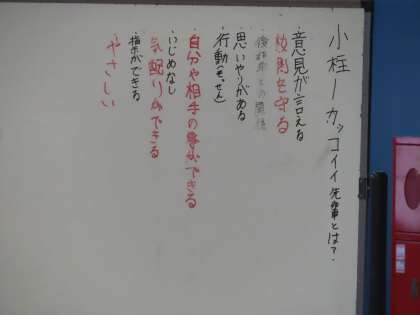 カッコイイ先輩とは？
・意見が言える
校則を守る
・後輩との関係
・思いやりがある
・行動(そっせん)
・自分や相手の事ができる
・いじめなし
気配りができる
・指示ができる
やさしい